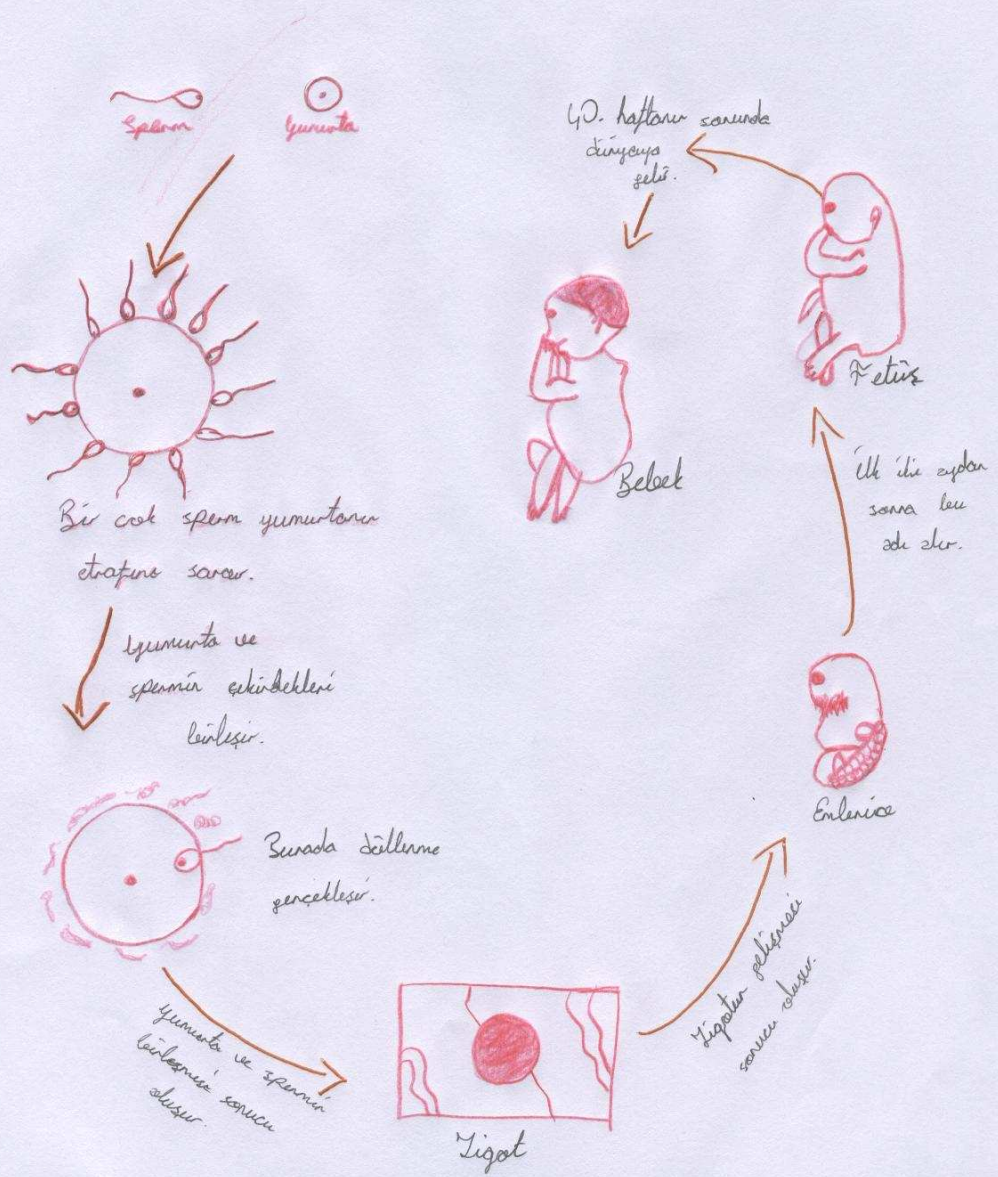 Sperm
Yumurta
Bir çok sperm yumurtanın
etrafını sarar.
Yumurta ve
spermin çekirdekleri
birleşir.
Burada döllenme
gerçekleşir.
Yumurta ve spermin
birleşmesi sonucu
oluşur.
Zigot
Zigotun gelişmesi
sonucu oluşur.
Embriyo
İlk iki aydan
sonra bu
adı alır.
Fetüs
40. haftanın sonunda
dünyaya
gelir.
Bebek